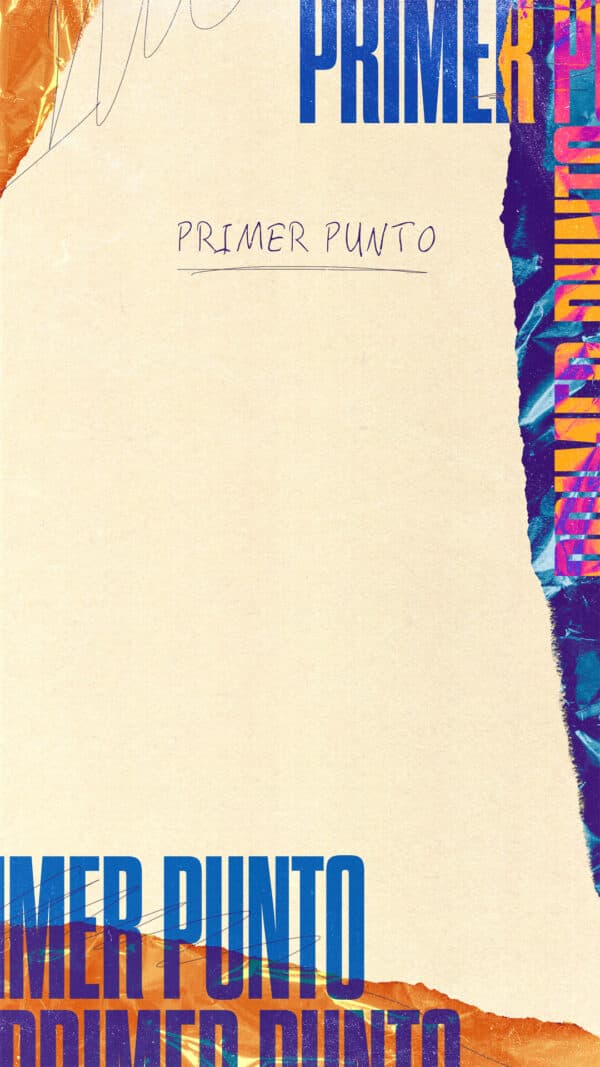 PRIMER P
PRIMER PUNTO
PRIMER PUNTO
IMER PUNTO
PRIMER PUNTO